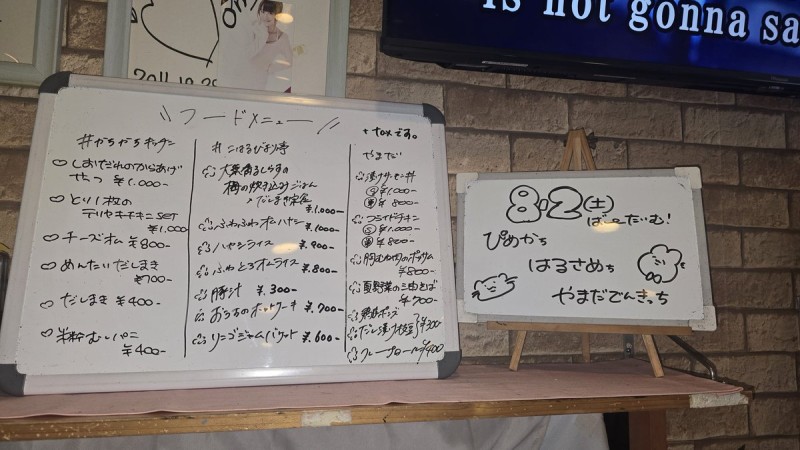 2011.10.29
is not gonna sa
フードメニュー
+taxです。
#がちがちキッチン
しおだれのからあげ
セット ¥1.000-
とり1枚の
テリヤキチキンSET
¥1.000
チーズオム ¥800-
めんたいだしまき
¥700-
だしまき ¥400-
米粉むしパン
¥400-
大葉香るしらすの
梅の炊き込みごはん
だしまき定食
¥1.000-
ふわふわオムハヤシ
¥1000-
ハヤシライス
¥900-
ふわとろオムライス
¥800-
豚汁 ¥.300-
おうちのホットケーキ
¥.700-
リンゴジャムバゲット
¥.600-
やまだ
漬けサーモン丼
¥1.000-
¥800-
フライドチキン
¥1.000-
¥800-
¥800-
夏野菜の
¥700-
¥300-
クレープロール ¥400
8.2(土)
ばーたいむ!
ぴめかち
はるさめち
やまだでんきっち